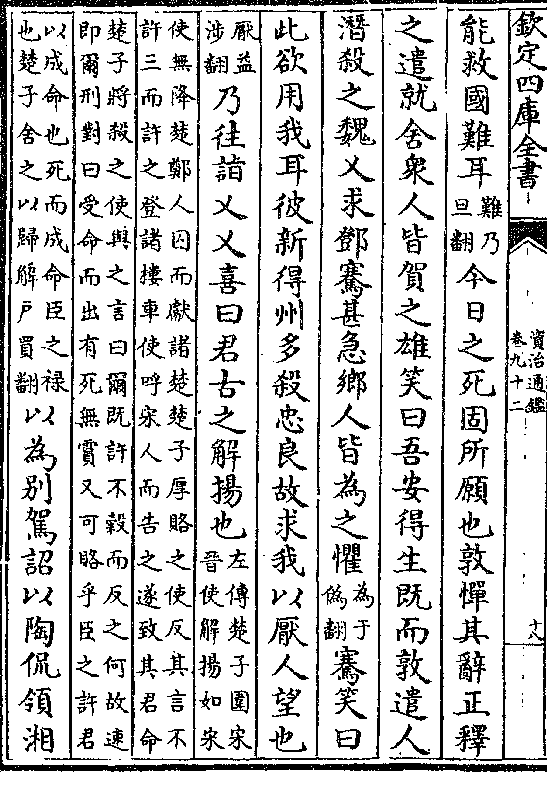 欽定四庫全書
資治通鑑
卷九十二
十八
能救國難耳難乃旦翻今日之死固所願也敦憚其辭正釋
之遣就舍衆人皆賀之雄笑曰吾安得生既而敦遣人
潛殺之魏乂求鄧騫甚急鄉人皆為之懼為于偽翻騫笑曰
此欲用我耳彼新得州多殺忠良故求我以厭人望也
厭益涉翻乃往詣乂乂喜曰君古之解揚也左傳楚子圍宋晉使解揚如宋
使無降楚鄭人囚而獻諸楚楚子厚賂之使反其言不
許三而許之登諸樓車使呼宋人而告之遂致其君命
楚子將殺之使與之言曰爾既許不穀而反之何故速
即爾刑對曰受命而出有死無霣又可賂乎臣之許君
以成命也死而成命臣之禄也楚子舍之以歸解戶買翻以為別駕詔以陶侃領湘